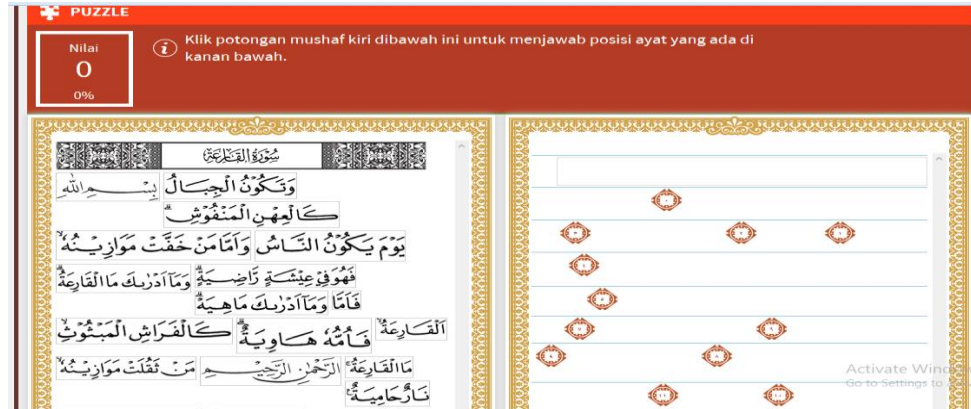 PUZZLE
Nilai
0
0%
Klik potongan mushaf kiri dibawah ini untuk menjawab posisi ayat yang ada di
kanan bawah.
سُوْرَةُ الْقَارِعَةِ
بِسْمِ اللّٰهِ وَتَكُوْنُ الْجِبَالُ
كَالْعِهْنِ الْمَنْفُوْشِۗ
يَوْمَ يَكُوْنُ النَّاسُ وَاَمَّا مَنْ خَفَّتْ مَوَازِيْنُهٗۙ
فَهُوَ فِيْ عِيْشَةٍ رَّاضِيَةٍۗ وَمَآ اَدْرٰىكَ مَا الْقَارِعَةُۗ
فَاَمَّا وَمَآ اَدْرٰىكَ مَا هِيَةْۗ
اَلْقَارِعَةُۙ فَاُمُّهٗ هَاوِيَةٌۗ كَالْفَرَاشِ الْمَبْثُوْثِۙ
مَا الْقَارِعَةُۚ الرَّحْمٰنِ الرَّحِيْمِ مَنْ ثَقُلَتْ مَوَازِيْنُهٗۙ
نَارٌ حَامِيَةٌ
Activate Wind
Go to Settings to